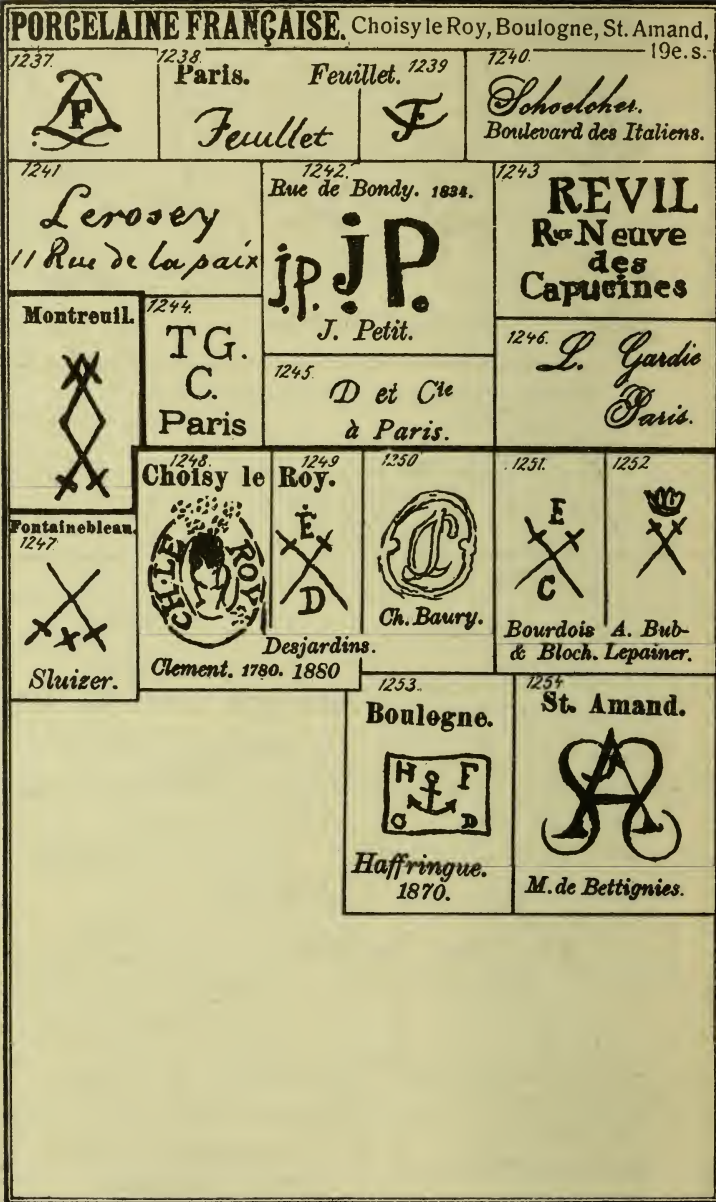 PORCELAINE FRANÇAISE. Choisy le Roy, Boulogne, St. Amand,
19e. s.
1237.
F
1238.
Paris.
Feuillet
Feuillet. 1239
F
1240.
Schoelcher.
Boulevard des Italiens.
1241
Lerosey
11 Rue de la paix
1242.
Rue de Bondy. 1834.
j.P. j.P.
J. Petit.
1243
REVIL
Rue Neuve
des
Capucines
Montreuil.
1244.
T G.
C.
Paris
1245.
D et Cie
à Paris.
1246.
L. Gardie
Paris.
Fontainebleau.
1247
Sluizer.
1248. 1249
Choisy le Roy.
CH. LE ROY
Clement. 1780.
E
D
Desjardins.
1880
1250
Ch. Baury.
1251.
E
C
Bourdois
& Bloch.
1252
A. Bub-
Lepainer.
1253.
Boulogne.
H F
C D
Haffringue.
1870.
1254
St. Amand.
M. de Bettignies.